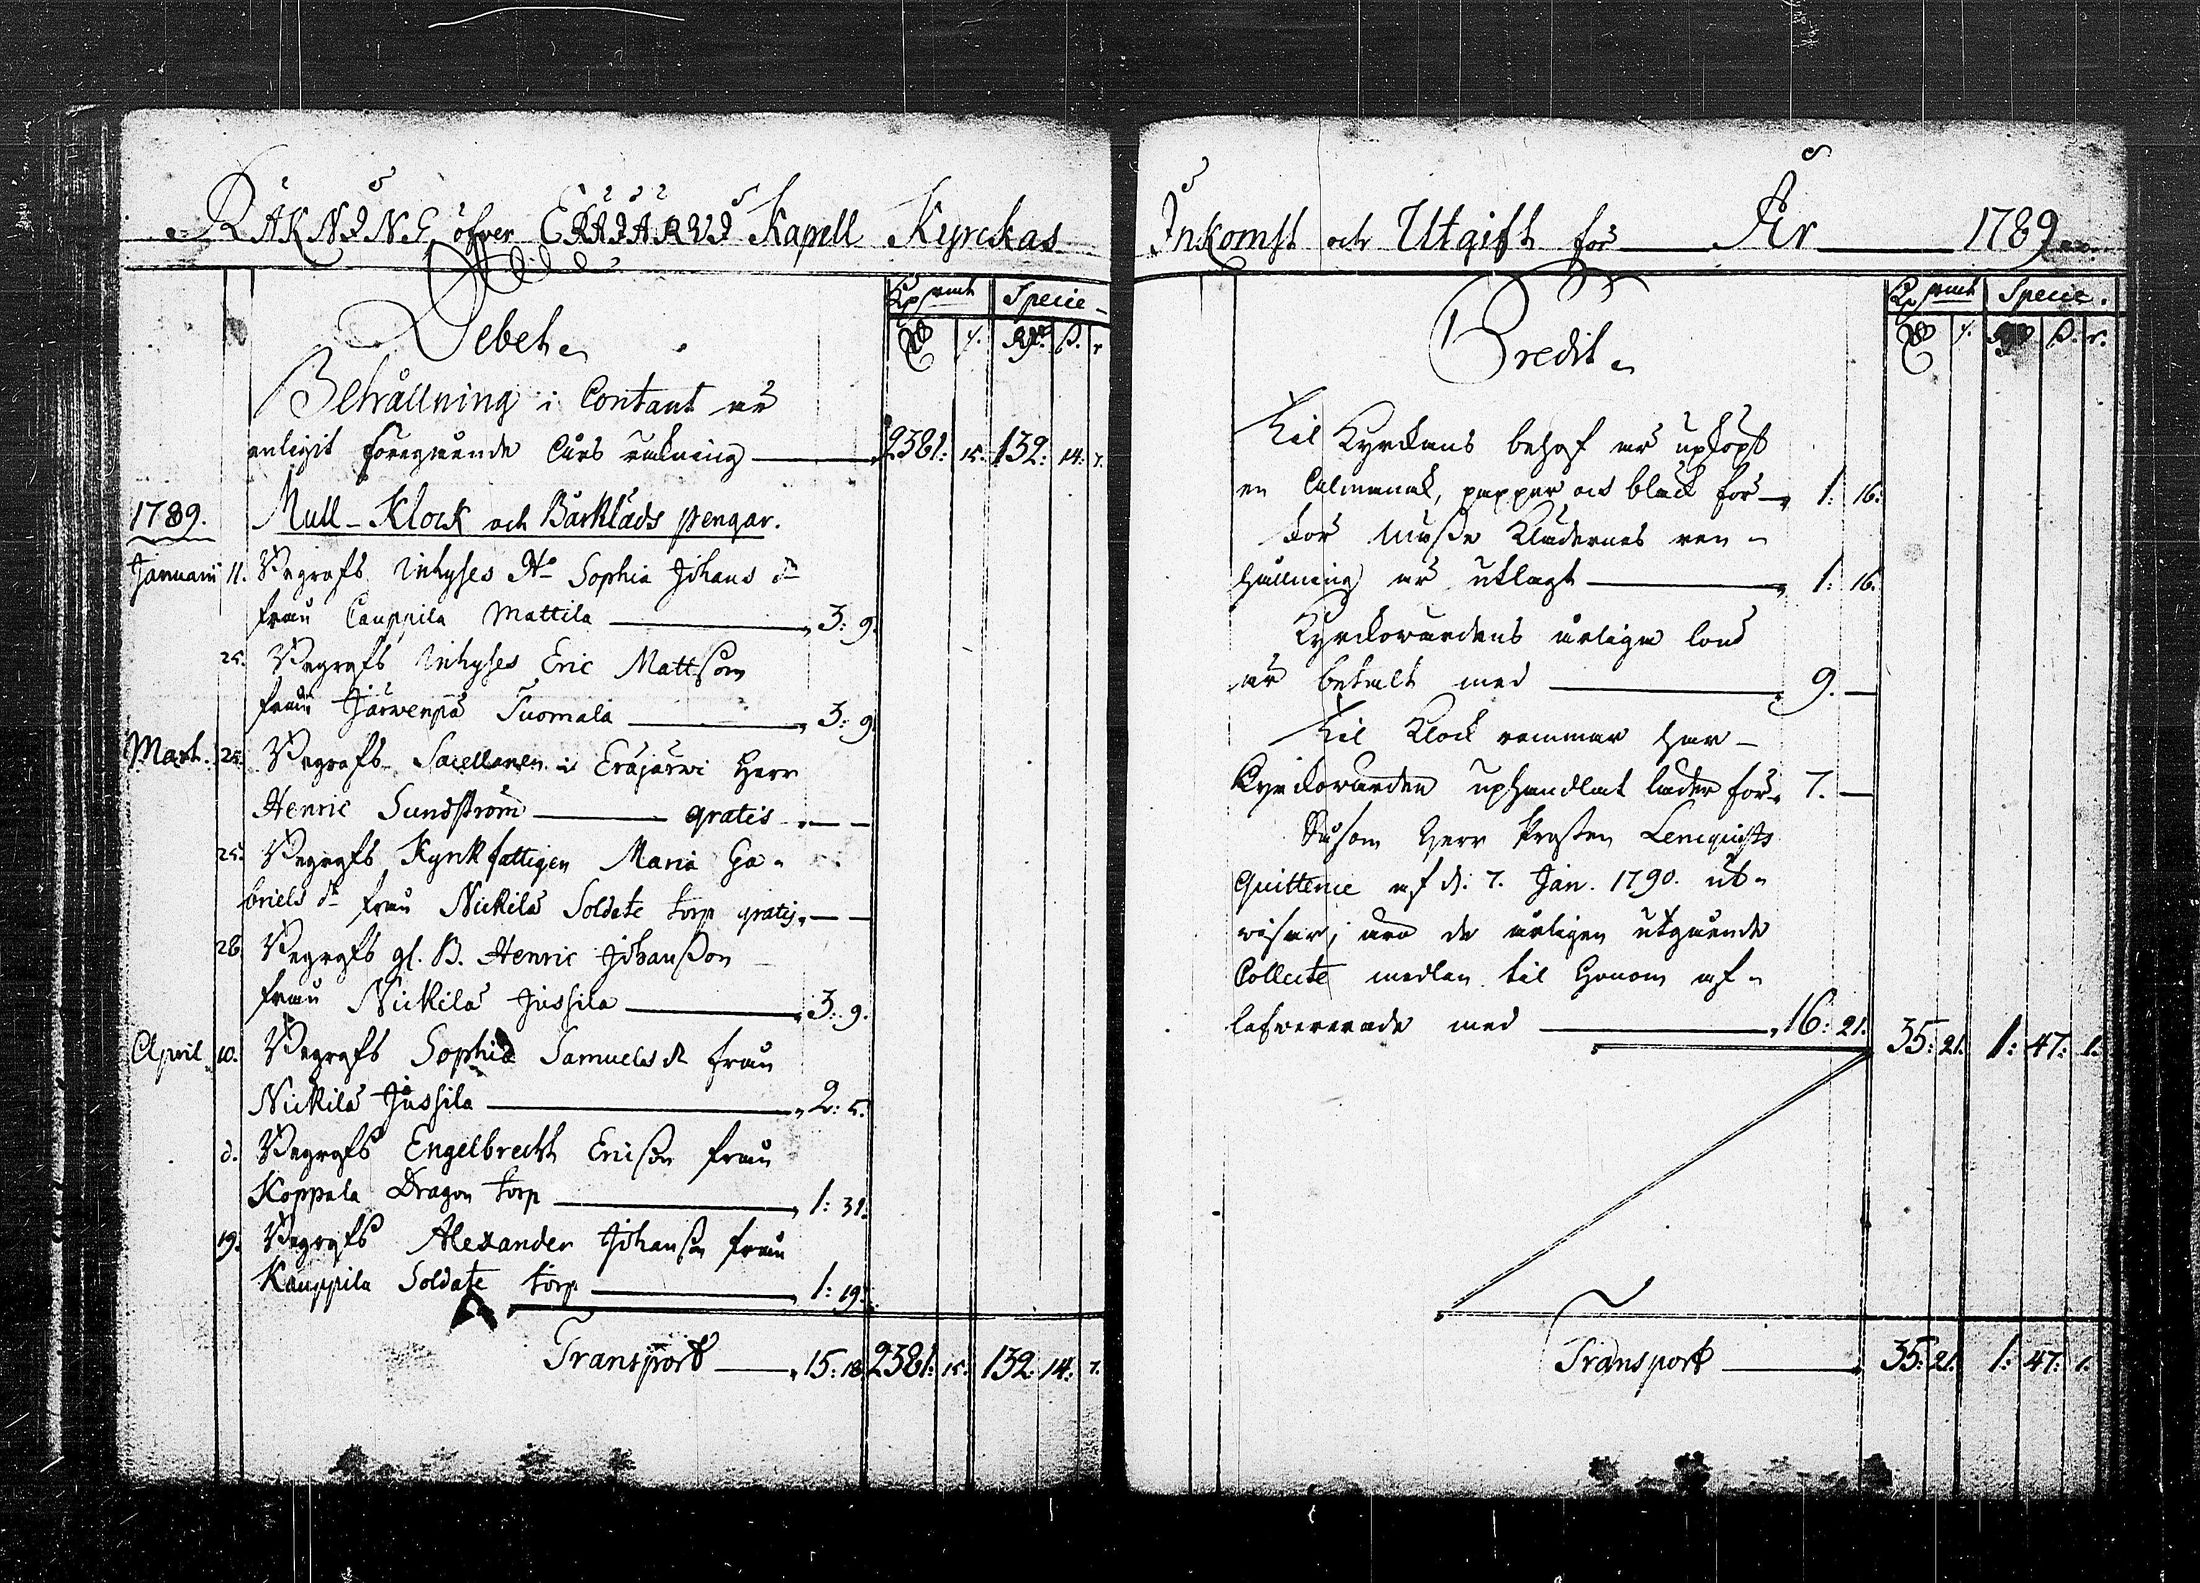 RÄKNING öfver ERÄJÄRVI Kapell Kyrckas
Debet
Kp mt Specie
Behållning i Contant är
enligit föregående åhrs räkning 2381: 15. 132: 14: 7.
1789. Mull-Klock och Bårkläds pengar.
Januarii 11. Begrofs Inhyses H: Sophia Johans dr
från Cauppila Mattila 3: 9.
25. Begrofs Inhyses Eric Mattsson
från Järwenpä Tuomala 3: 9.
Mart. 25. Begrofs Sacellanen i Eräjärwi Herr
Henric Sundström gratis
25. Begrofs Kyrkfattigen Maria Ga-
briels dr från Nickilä Soldate torp gratis
28. Begrofs gl. B. Henric Johansson
från Nickilä Jussila 3: 9.
April 10. Begrofs Sophia Samuels dr från
Nickilä Jussila 2: 5.
d. Begrofs Engelbrecht Ericson från
Koppala Dragon torp 1: 31.
19. Begrofs Alexander Johanson från
Kauppila Soldate torp 1: 19.
Transport 15: 18 2381: 15. 132: 14: 7.
Inkomst och Utgift för År 1789
Credit
Kp mt Specie.
Til Kyrckans behof är upköpt
en Calmanak, papper och bläck för 1: 16.
För Mässe Klädernes ren-
hållning är utlagt 1: 16.
Kyrckowärdens årliga lön
är betalt med 9.
Til Klock remmar har
Kyrckowärden uphandlat läder för 7.
Såsom Herr Prosten Lencquists
Quittence af d. 7. Jan. 1790. ut-
wisar, äro de årligen utgående
Collecte medlen til Honom af-
lefvererade med 16: 21. 35: 21. 1: 47: 1.
Transport 35: 21. 1: 47: 1.